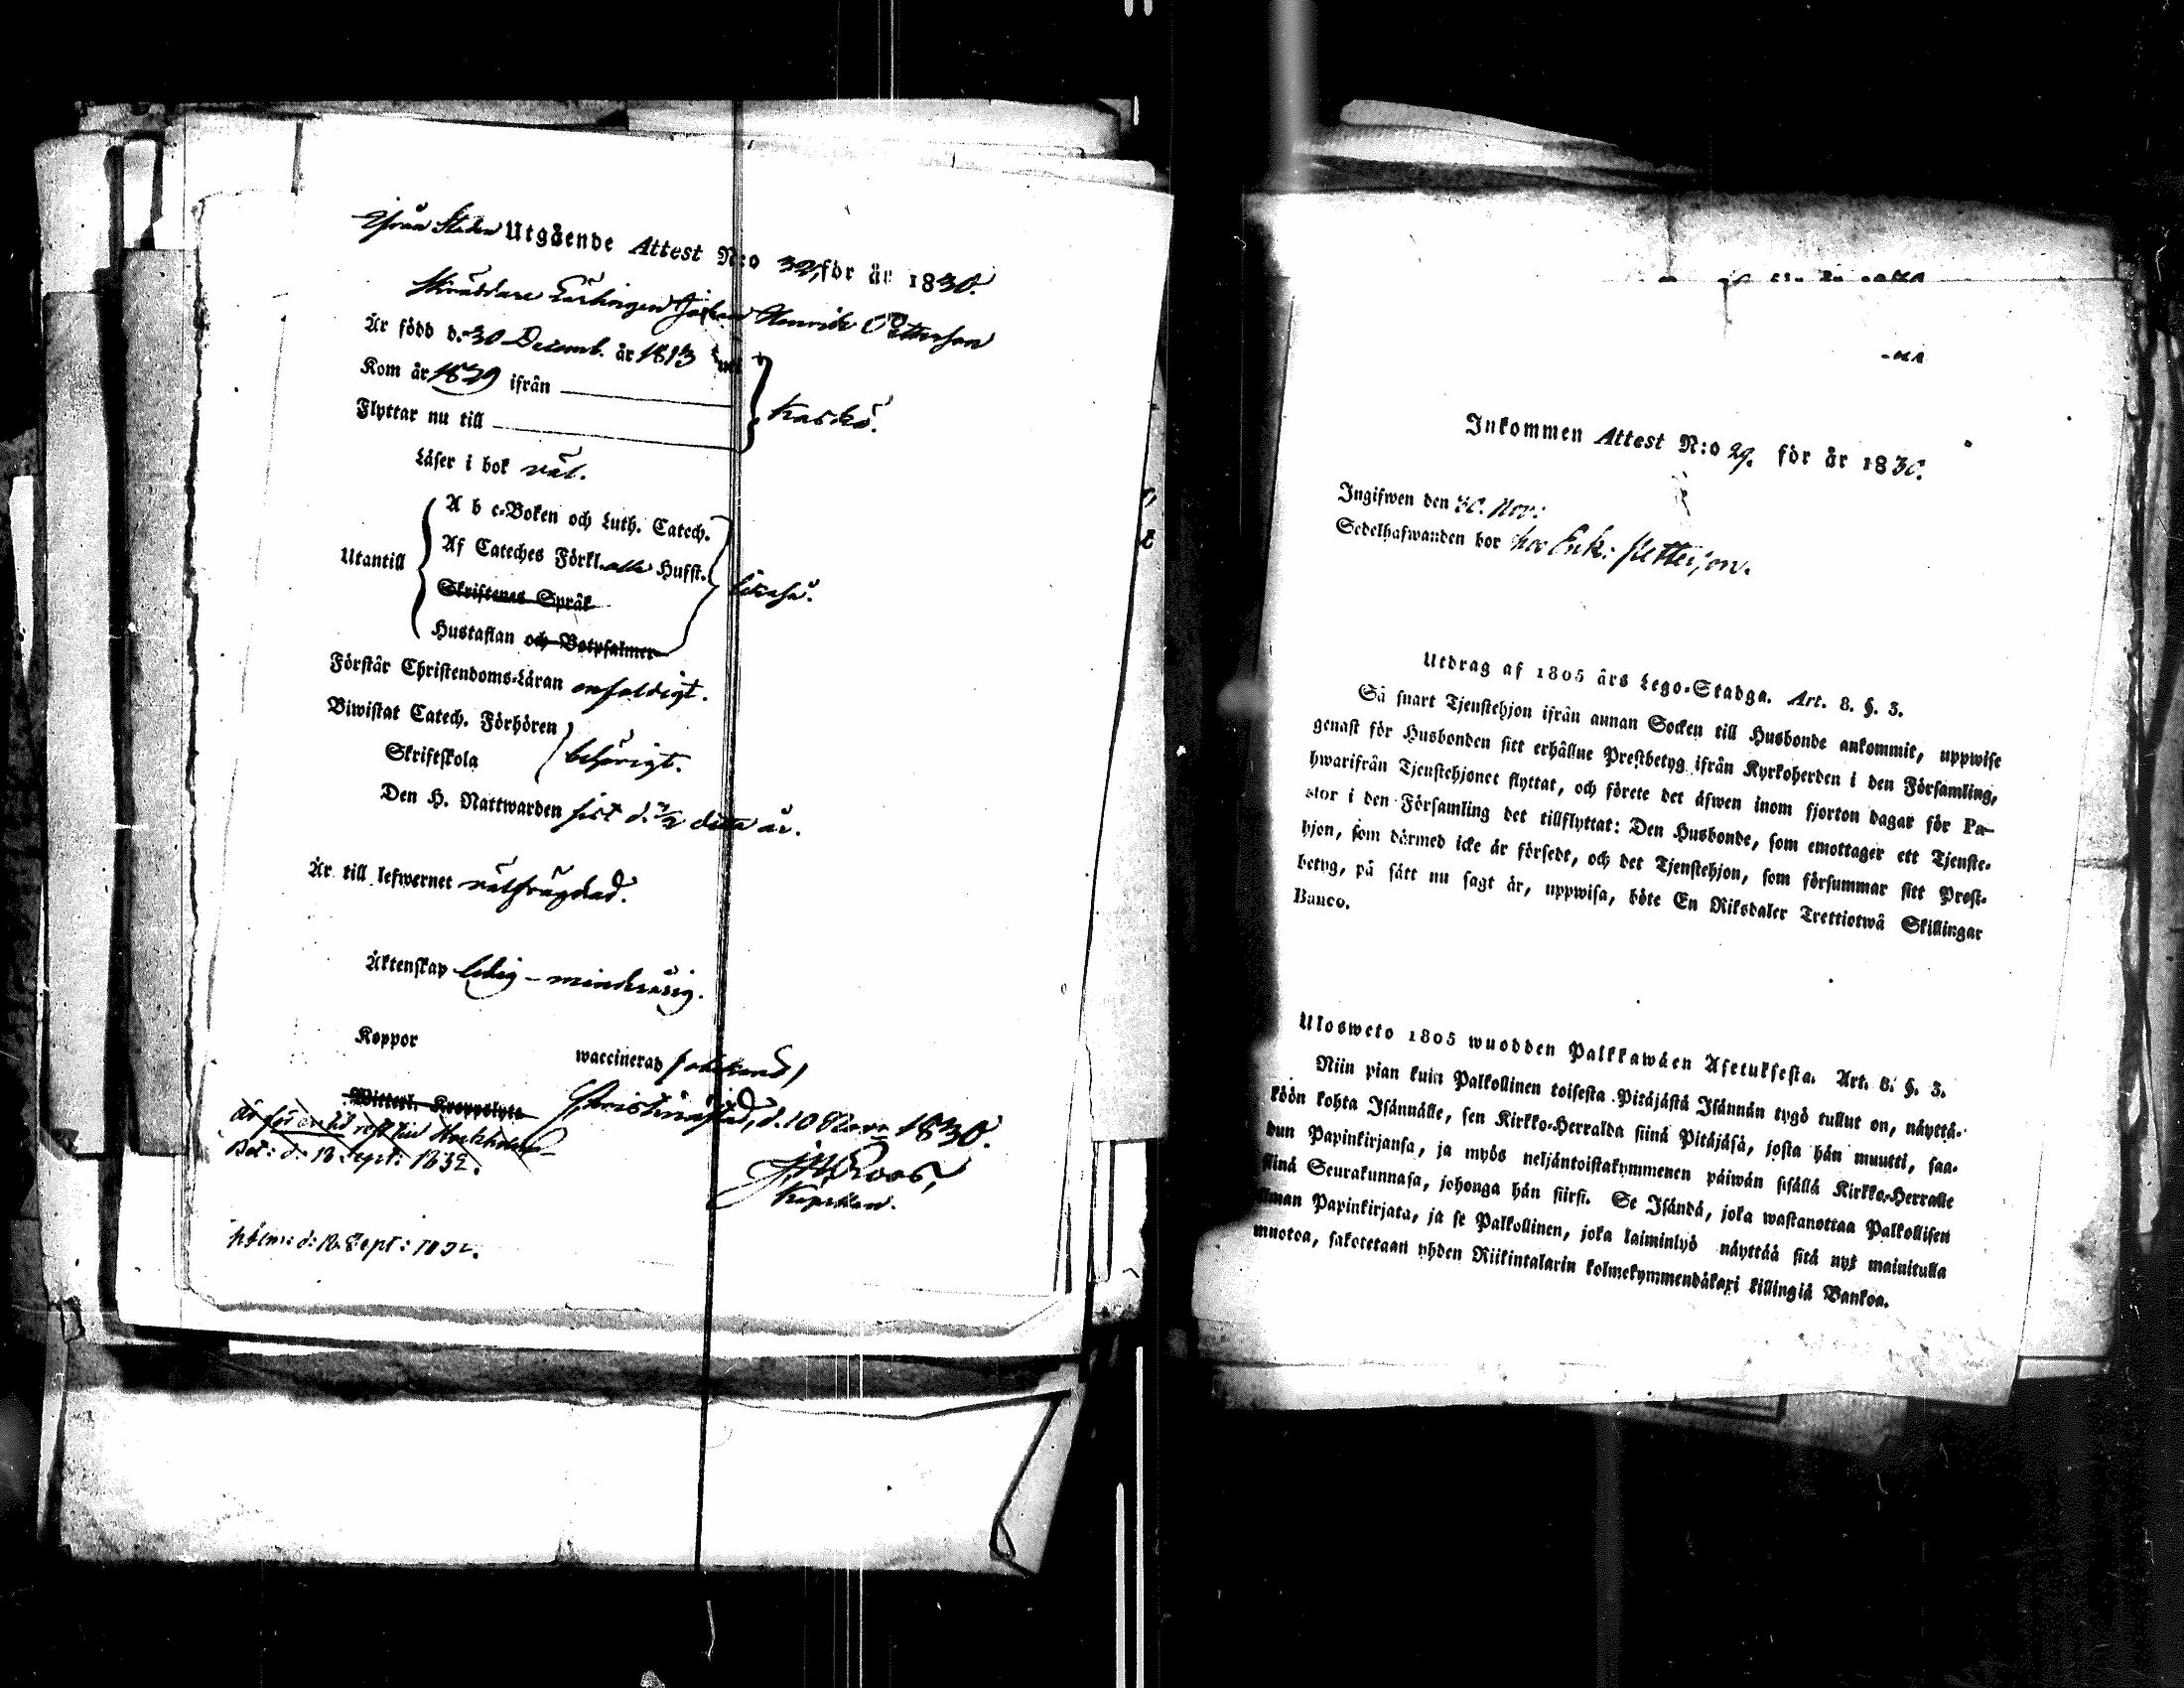 Ifrån Staden Utgående Attest N:o 32, för år 1830.
Skräddare Lärlingen Johan Henrik Petterson
Är född d. 30 Decemb. år 1813
Kom år 1829 ifrån
Flyttar nu till
Kaskö.
Läser i bok väl.
Utantill
A b c-Boken och Luth. Catech.
Af Cateches Förkl. alla Hufst.
Skriftenes Språk
Hustaflan och Botpsalmer
likaså.
Förstår Christendoms-Läran enfaldigt.
Biwistat Catech. Förhören
Skriftskola
behörigt.
Den H. Nattwarden sist d. detta år.
Är till lefwernet välfrägdad.
Äktenskap ledig – minderårig.
Koppor
waccinerad
Witterl. Kroppslyte
Christinestad, d. 10 1830.
Roos,
Kapellan.
är för en tid rest till Stockholm
Bet: d: 18 Sept: 1832.
d: 18 Sept: 1832.
Inkommen Attest N:o 29. för år 1830.
Ingifwen den 30. Nov:
Sedelhafwanden bor hos Enk: Petterson.
Utdrag af 1805 års Lego-Stadga. Art. 8. §. 3.
Så snart Tjenstehjon ifrån annan Socken till Husbonde ankommit, uppwise
genast för Husbonden sitt erhållne Prestbetyg ifrån Kyrkoherden i den Församling,
hwarifrån Tjenstehjonet flyttat, och förete det äfwen inom fjorton dagar för Pa-
stor i den Församling det tillflyttat: Den Husbonde, som emottager ett Tjenste-
hjon, som dermed icke är försedt, och det Tjenstehjon, som försummar sitt Prest-
betyg, på sätt nu sagt är, uppwisa, böte En Riksdaler Trettiotwå Skillingar
Banco.
Ulosweto 1805 wuodden Palkkawäen Asetuksesta. Art. 8. §. 3.
Niin pian kuin Palkollinen toisesta Pitäjästä Isännän tygö tullut on, näyttä-
köön kohta Isännälle, sen Kirkko-Herralda siinä Pitäjäsä, josta hän muutti, saa-
dun Papinkirjansa, ja myös neljäntoistakymmenen päiwän sisällä Kirkko-Herralle
siinä Seurakunnasa, johonga hän siirsi. Se Isändä, joka wastanottaa Palkollisen
ilman Papinkirjata, ja se Palkollinen, joka laiminlyö näyttää sitä nyt mainitulla
muotoa, sakotetaan yhden Riikintalarin kolmekymmendäkaxi killingiä Bankoa.